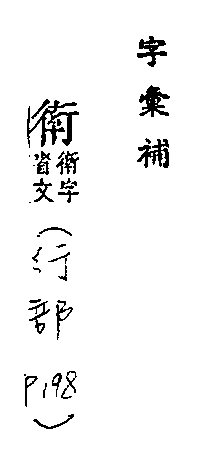 字彙補
衛字
省文
(行部
P.198)